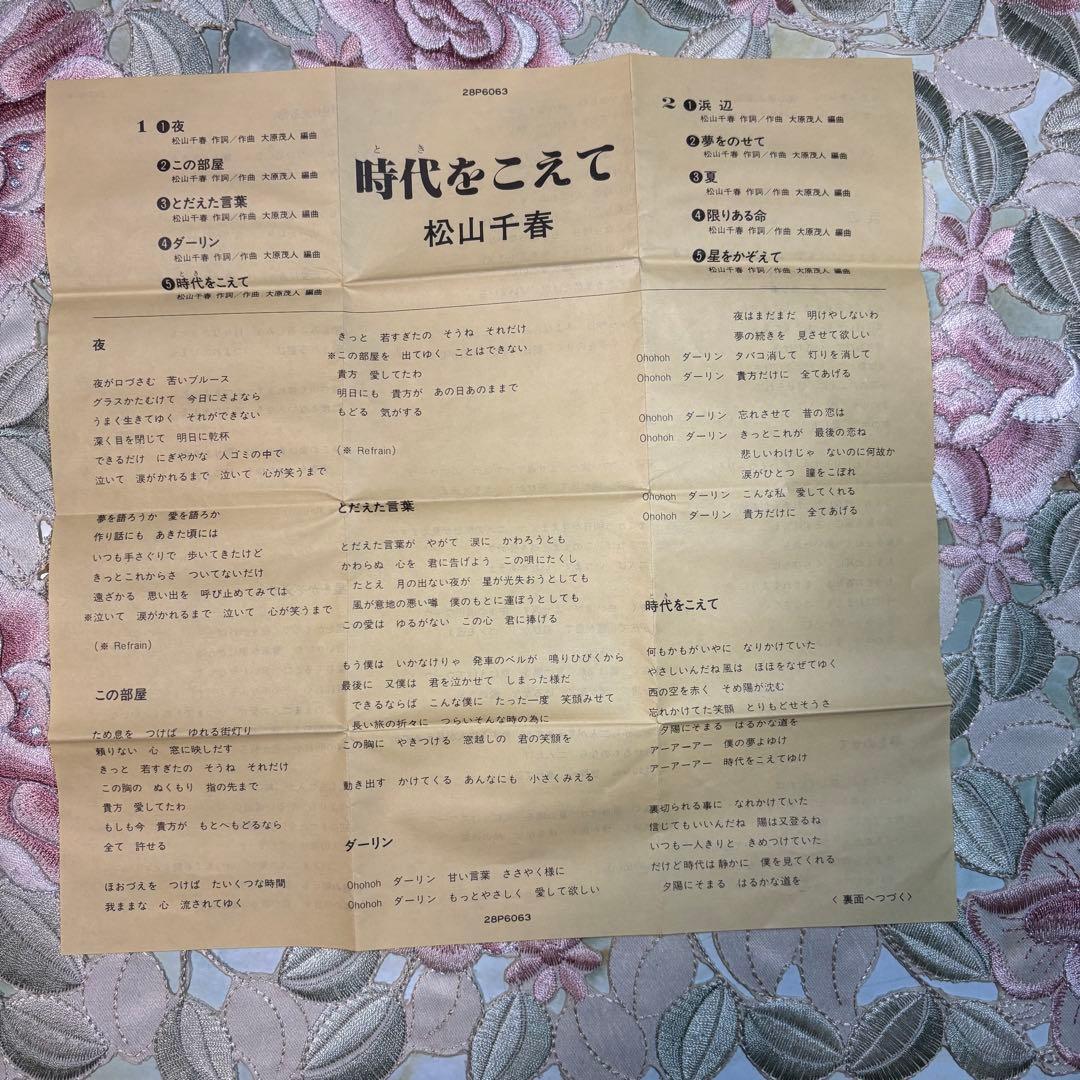 28P6063
時代をこえて
とき
松山千春
1 ❶夜
松山千春 作詞／作曲 大原茂人 編曲
❷この部屋
松山千春 作詞／作曲 大原茂人 編曲
❸とだえた言葉
松山千春 作詞／作曲 大原茂人 編曲
❹ダーリン
松山千春 作詞／作曲 大原茂人 編曲
とき
❺時代をこえて
松山千春 作詞／作曲 大原茂人 編曲
2 ❶浜辺
松山千春 作詞／作曲 大原茂人 編曲
❷夢をのせて
松山千春 作詞／作曲 大原茂人 編曲
❸夏
松山千春 作詞／作曲 大原茂人 編曲
❹限りある命
松山千春 作詞／作曲 大原茂人 編曲
❺星をかぞえて
松山千春 作詞／作曲 大原茂人 編曲
夜
夜が口づさむ 苦いブルース
グラスかたむけて 今日にさよなら
うまく生きてゆく それができない
深く目を閉じて 明日に乾杯
できるだけ にぎやかな 人ゴミの中で
泣いて 涙がかれるまで 泣いて 心が笑うまで
夢を語ろうか 愛を語ろか
作り話にも あきた頃には
いつも手さぐりで 歩いてきたけど
きっとこれからさ ついてないだけ
遠ざかる 思い出を 呼び止めてみては
※泣いて 涙がかれるまで 泣いて 心が笑うまで
(※ Refrain)
この部屋
ため息を つけば ゆれる街灯り
頼りない 心 窓に映しだす
きっと 若すぎたの そうね それだけ
この胸の ぬくもり 指の先まで
貴方 愛してたわ
もしも今 貴方が もとへもどるなら
全て 許せる
ほおづえを つけば たいくつな時間
我ままな 心 流されてゆく
きっと 若すぎたの そうね それだけ
※この部屋を 出てゆく ことはできない
貴方 愛してたわ
明日にも 貴方が あの日あのままで
もどる 気がする
(※ Refrain)
とだえた言葉
とだえた言葉が やがて 涙に かわろうとも
かわらぬ 心を 君に告げよう この唄にたくし
たとえ 月の出ない夜が 星が光失おうとしても
風が意地の悪い噂 僕のもとに運ぼうとしても
この愛は ゆるがない この心 君に捧げる
もう僕は いかなけりゃ 発車のベルが 鳴りひびくから
最後に 又僕は 君を泣かせて しまった様だ
できるならば こんな僕に たった一度 笑顔みせて
長い旅の折々に つらいそんな時の為に
この胸に やきつける 窓越しの 君の笑顔を
動き出す かけてくる あんなにも 小さくみえる
ダーリン
Ohohoh ダーリン 甘い言葉 ささやく様に
Ohohoh ダーリン もっとやさしく 愛して欲しい
夜はまだまだ 明けやしないわ
夢の続きを 見させて欲しい
Ohohoh ダーリン タバコ消して 灯りを消して
Ohohoh ダーリン 貴方だけに 全てあげる
Ohohoh ダーリン 忘れさせて 昔の恋は
Ohohoh ダーリン きっとこれが 最後の恋ね
悲しいわけじゃ ないのに何故か
涙がひとつ 瞳をこぼれ
Ohohoh ダーリン こんな私 愛してくれる
Ohohoh ダーリン 貴方だけに 全てあげる
とき
時代をこえて
何もかもがいやに なりかけていた
やさしいんだね風は ほほをなぜてゆく
西の空を赤く そめ陽が沈む
忘れかけてた笑顔 とりもどせそうさ
夕陽にそまる はるかな道を
アーアーアー 僕の夢よゆけ
アーアーアー 時代をこえてゆけ
裏切られる事に なれかけていた
信じてもいいんだね 陽は又登るね
いつも一人きりと きめつけていた
だけど時代は静かに 僕を見てくれる
夕陽にそまる はるかな道を
〈裏面へつづく〉
28P6063